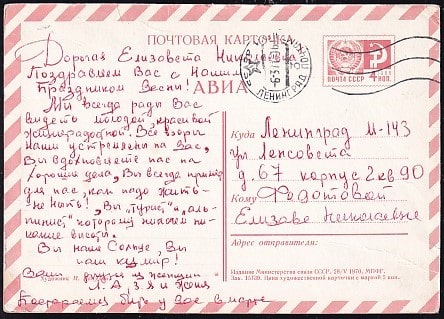 ПОЧТОВАЯ КАРТОЧКА
АВИА
ПОЧТА СССР
ЛЕНИНГРАД
Дорогая Елизавета Николаевна
Поздравляем Вас с Нашим
Праздником Весны!
Мы всегда рады Вас
видеть молодой, красивой
жизнерадостной. Все взоры
наши устремлены на Вас,
Вы вдохновляете нас на
хорошие дела, Вы всегда пример
для нас, как надо жить-
не ныть! Вы "турист" и "аль-
пинист" которому никакие
высоты.
Вы наше Солнце, Вы
наш кумир!
Ваши друзья
Л.А, З.Я и Женя
Постараемся быть у Вас в марте
Куда Ленинград М-143
ул Ленсовета
д. 67 корпус 2 кв 90
Кому Федотовой
Елизаве Николаевне
Адрес отправителя:
Издание Министерства связи СССР. 28/V 1970. МПФГ.
Зак. Цена художественной карточки с маркой 5 коп.
Художник